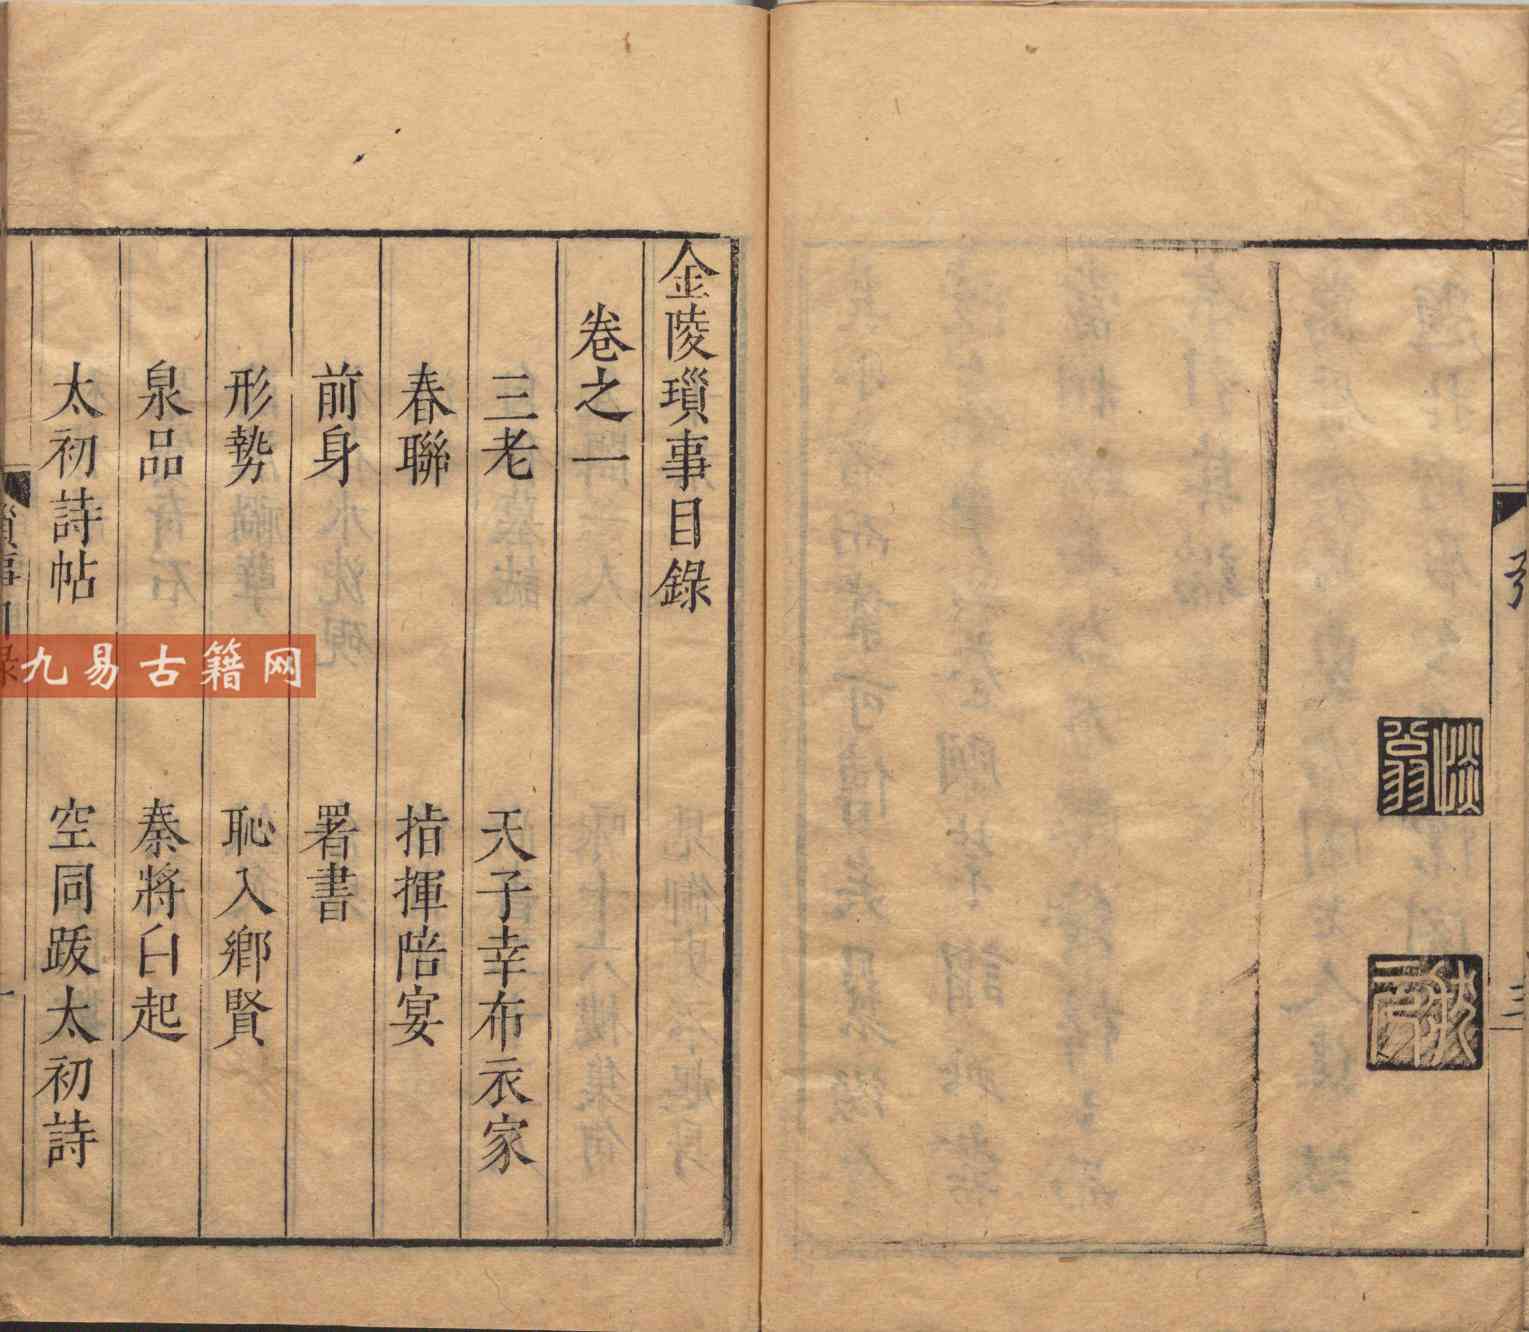 引
三
金陵瑣事目錄
卷之一
三老 天子幸布衣家
春聯 指揮陪宴
前身 署書
形勢 恥入鄉賢
泉品 秦將白起
太初詩帖 空同跋太初詩
瑣事目錄
一
九易古籍网